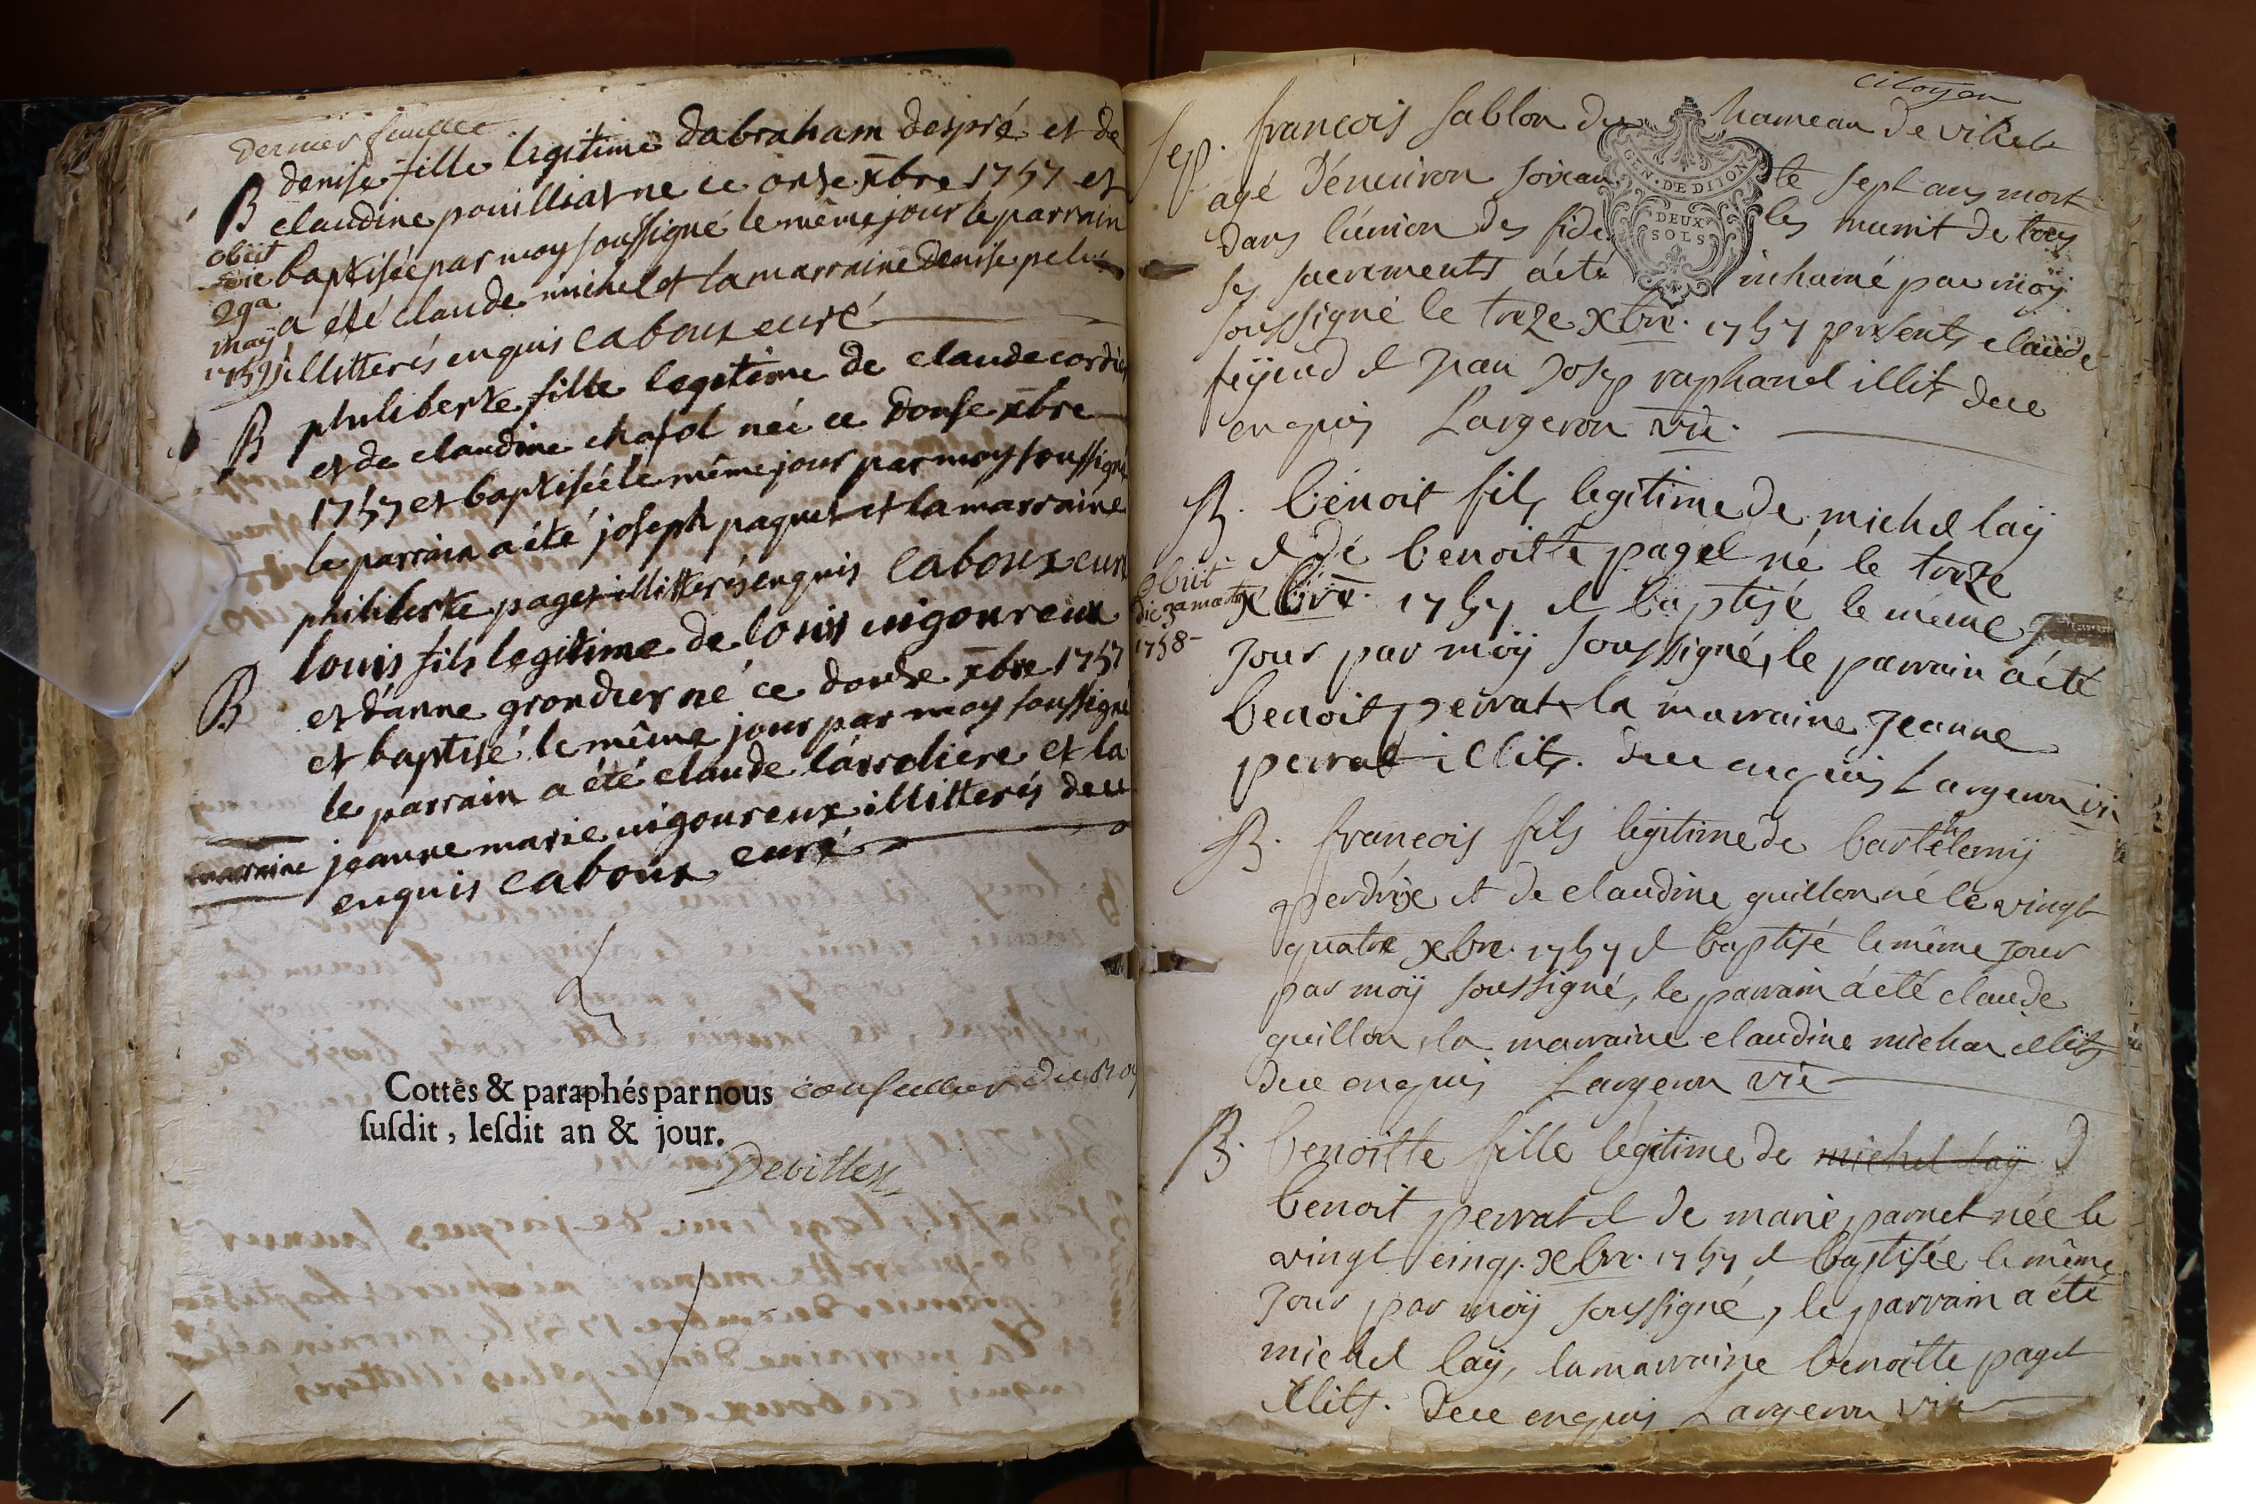 Dernier feuillet
B denise fille legitime dabraham despré et de
claudine pouilliat ne ce onse xbre 1757 et
baptisée par moy soussigné le même jour le parrain
a été claude michel et la marraine denise pelus
illitterés enquis caboux curé
obiit
die
29a
may
1759
B philiberte fille legitime de claude cordier
et de claudine chasol née ce douse xbre
1757 et baptisée le même jour par moy soussigné
le parrain a été joseph paquet et la marraine
philiberte paget illitterés enquis caboux curé
B louis fils legitime de louis vigoureux
et d'anne grondier né ce douse xbre 1757
et baptisé le même jour par moy soussigné
le parrain a été claude larroliere et la
marraine jeanne marie vigoureux illitterés deue
enquis caboux curé
Cottés & paraphés par nous conseiller du Roy
susdit, lesdit an & jour.
Devillers
citoyen
Sep. françois sablon du hameau de villette
agé d'environ soixante sept ans mort
dans l'union des fideles munit de tous
ses sacrements a été inhumé par moy
soussigné le treze xbre. 1757 presents claude
feyeud et Jean Josep raphanel illit deue
enquis Largeron vic.
GEN. DE DIJON
DEUX
SOLS
B. benoit fils legitime de michel laÿ
et de benoitte paget né le treze
xbre. 1757 et baptisé le même
Jour par moÿ soussigné, le parrain a été
benoit perrat la marraine Jeanne
perrat illits. deue enquis Largeron vic
obiit
die 3a martii
1758
B. françois fils legitime de barthelemÿ
perdrix et de claudine guillon né le vingt
quatre xbre. 1757 et baptisé le même Jour
par moÿ soussigné, le parrain a été claude
guillon, la marraine claudine michon illits
deue enquis Largeron vic
B. benoitte fille légitime de michel laÿ d
benoit perrat et de marie parnet née le
vingt cinq. xbre. 1757 et baptisée le même
Jour par moÿ soussigné, le parrain a été
michel laÿ, la marraine benoitte paget
illits. deue enquis Largeron vic